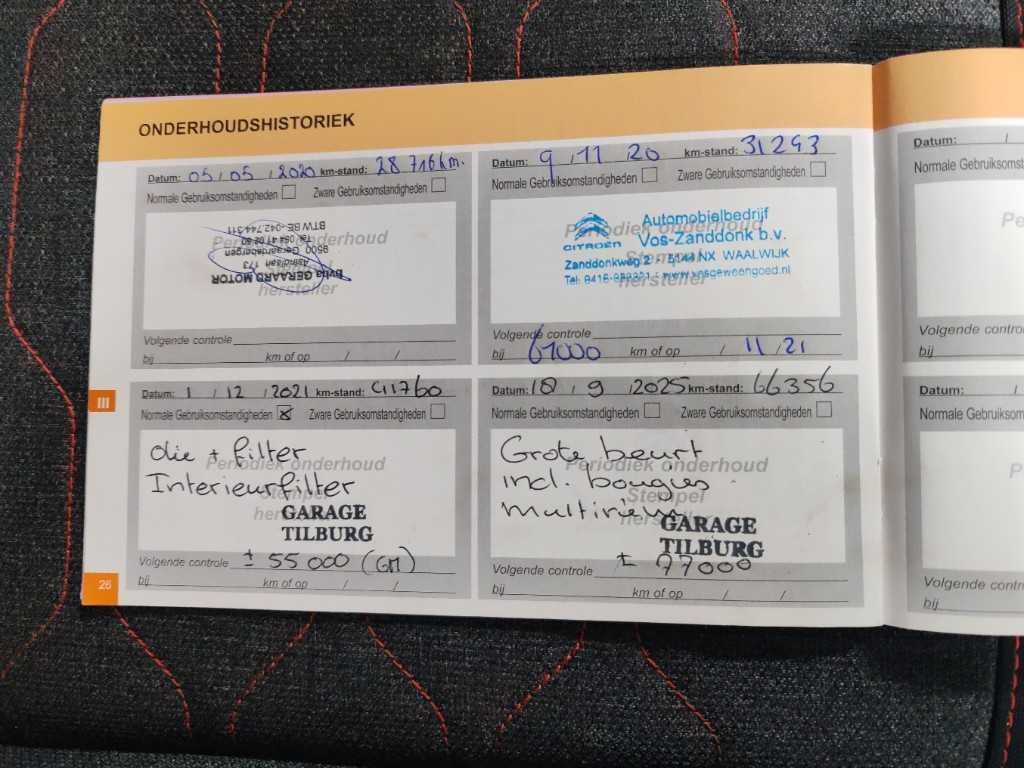 ONDERHOUDSHISTORIEK
Datum: 05 / 05 / 2020 km-stand: 28 716 km.
Normale Gebruiksomstandigheden Zware Gebruiksomstandigheden
Periodiek onderhoud
hersteller
Bvba GERAARD MOTOR
Astridlaan 173
9500 Geraardsbergen
BTW BE
Volgende controle
bij km of op / /
Datum: 9 / 11 / 20 km-stand: 31 293
Normale Gebruiksomstandigheden Zware Gebruiksomstandigheden
Periodiek onderhoud
Stempel
hersteller
CITROËN
Automobielbedrijf
Vos-Zanddonk b.v.
Zanddonkweg 2 - 5144 NX WAALWIJK
Tel: www.vosgewoongoed.nl
Volgende controle
bij 61000 km of op / 11 / 21
III
Datum: 1 / 12 / 2021 km-stand: 41760
Normale Gebruiksomstandigheden x Zware Gebruiksomstandigheden
Periodiek onderhoud
Olie + filter
Interieurfilter
GARAGE
TILBURG
Volgende controle ± 55000 (GM)
bij km of op / /
Datum: 18 / 9 / 2025 km-stand: 66356
Normale Gebruiksomstandigheden Zware Gebruiksomstandigheden
Periodiek onderhoud
Stempel
Grote beurt
incl. bougies
multiriem
GARAGE
TILBURG
Volgende controle ± 77000
bij km of op / /
26
Datum: /
Normale Gebruiksom
Pe
Volgende contro
bij
Datum: /
Normale Gebruiksom
P
Volgende contro
bij